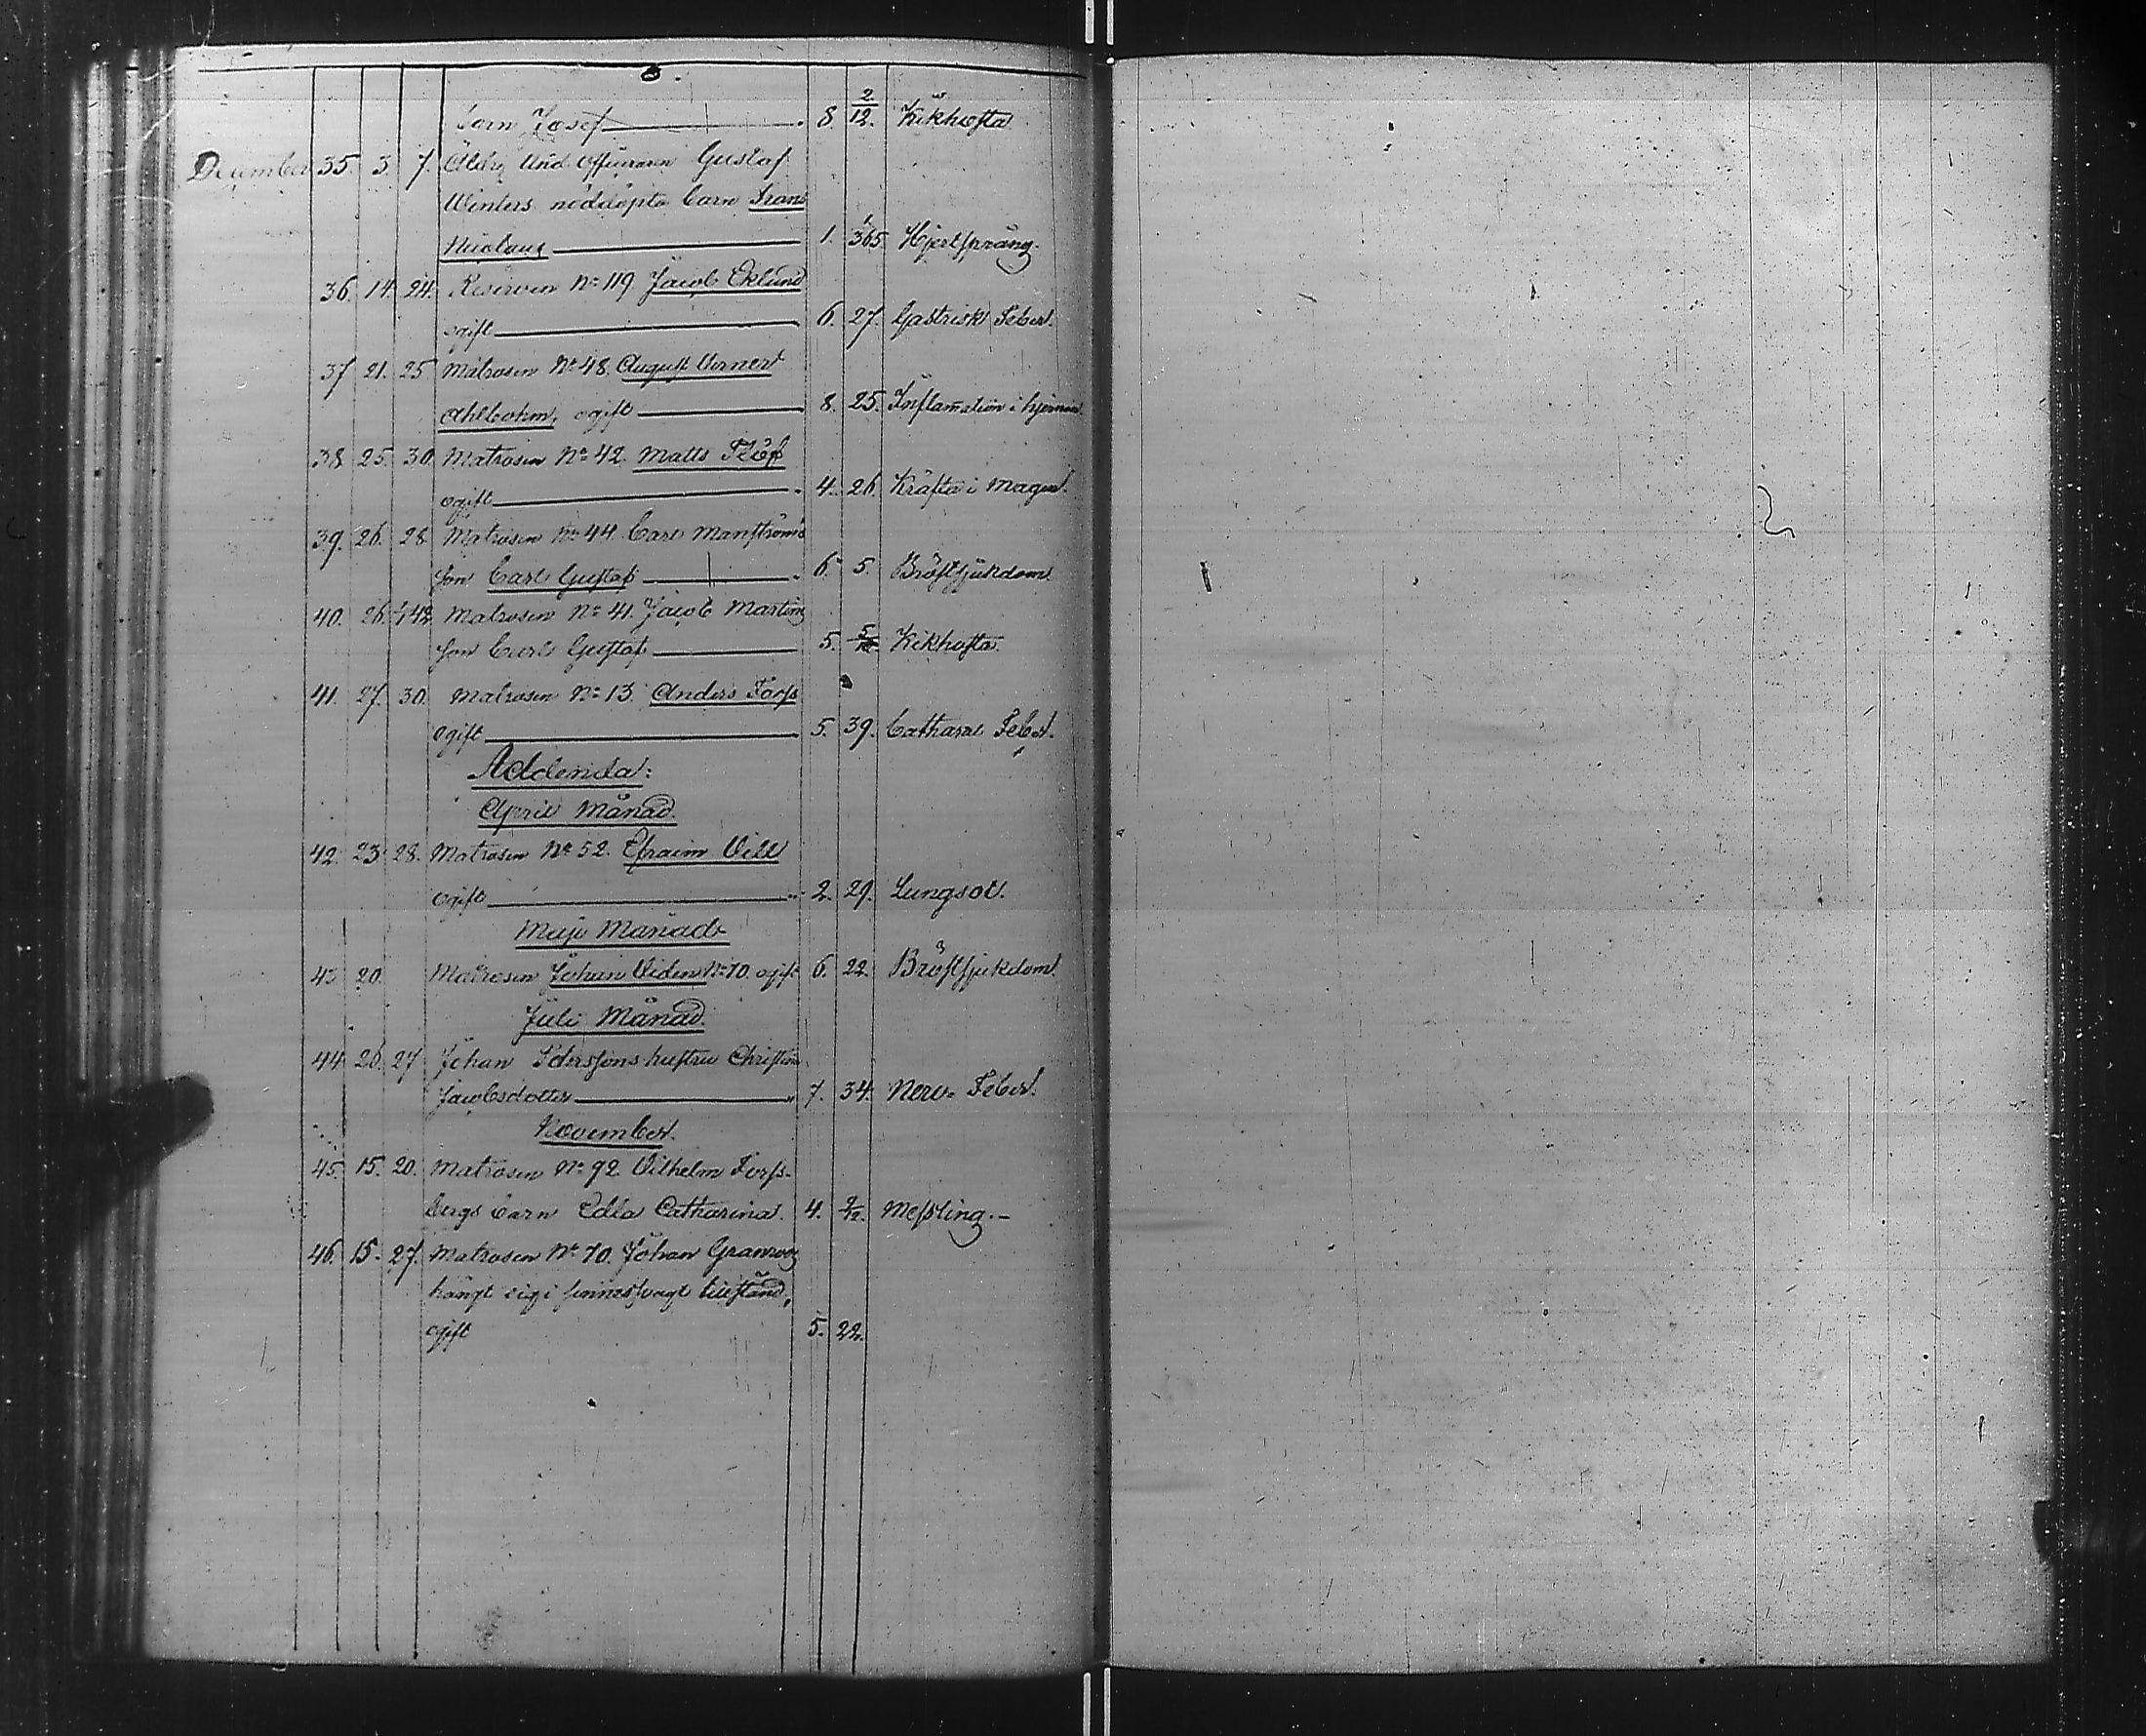 barn Josef 8. 2/12. Kikhosta
December 35. 3. 7. Äldre Und. officeraren Gustaf
Winters nöddöpta barn Frans
Nicolaus 1. 1/365. Hjertsprång.
36. 14. 24. Reserven No 119 Jacob Eklund
ogift 6. 27. Gastrisk Feber.
37 21. 25 Matrosen No 48. August Verner
Ahlbohm, ogift 8. 25. Inflamation i hjernan.
38 25. 30 Matrosen No 42. Matts
ogift 4. 26 Kräfta i magen.
39. 26. 28 Matrosen No 44 Carl Manströms
son Carl Gustaf 6. 5. Bröstsjukdom
40. 26. Matrosen No 41. Jacob Martins
son Carl Gustaf 5. Kikhosta
41. 27. 30. Matrosen No 13. Anders Forss
ogift 5. 39. Catharral Feber.
Addenda:
April Månad.
42. 23. 28. Matrosen No 52. Efraim Vill
ogift 2. 29. Lungsot.
Maji Månad
43 20. Matrosen Johan Widen No 70. ogift 6. 22. Bröstsjukdom.
Juli Månad.
44 26. 27 Johan hustru Christina
Jacobsdotter 7. 34. Nerv- Feber.
November.
45. 15. 20. Matrosen No 92. Vilhelm Forss-
bergs barn Edla Catharina. 4. 9/12. Messling.-
46. 15. 27. Matrosen No 70. Johan Granroos
hängt sig i sinnessvagt tillstånd,
ogift 5. 22.